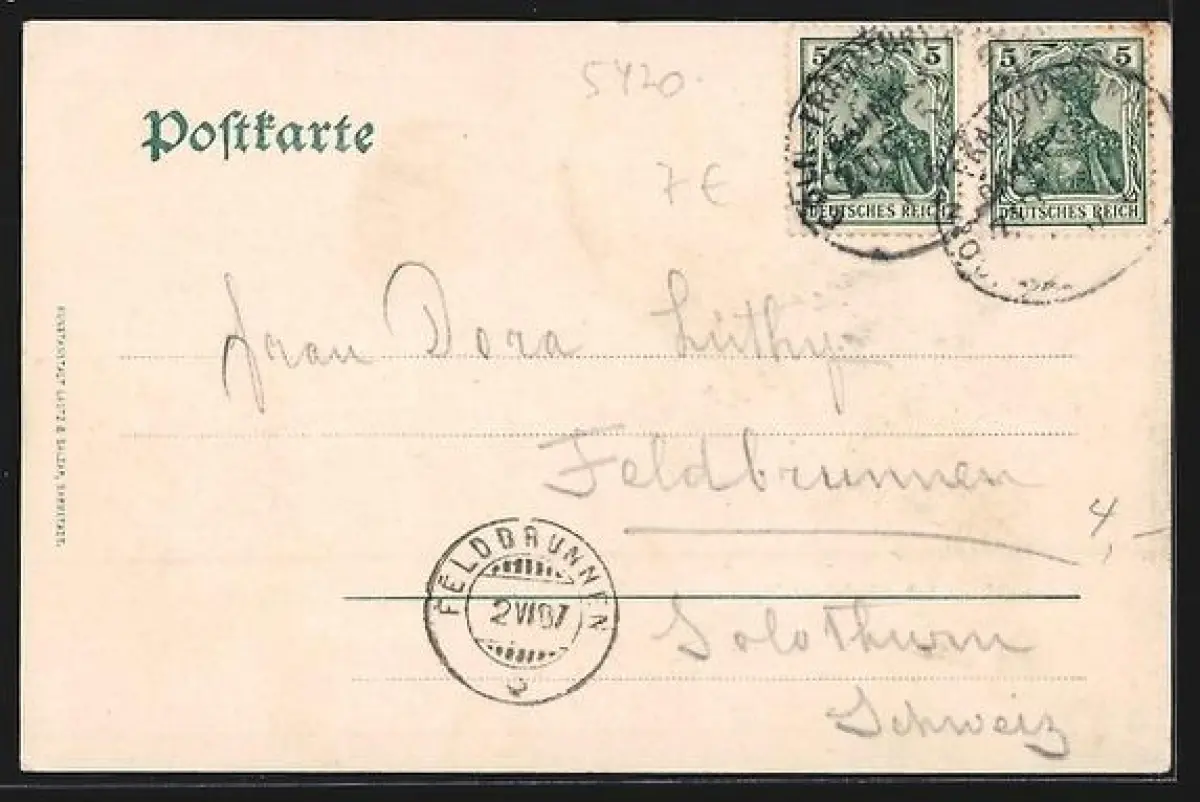 5420.
Postkarte
7 €
5 5
DEUTSCHES REICH
5 5
DEUTSCHES REICH
FRANKFURT
FRANKFU
BAHN
Frau Dora Lüthy
Feldbrunnen
4,-
FELDBRUNNEN
2 VI 07
Solothurn
Schweiz